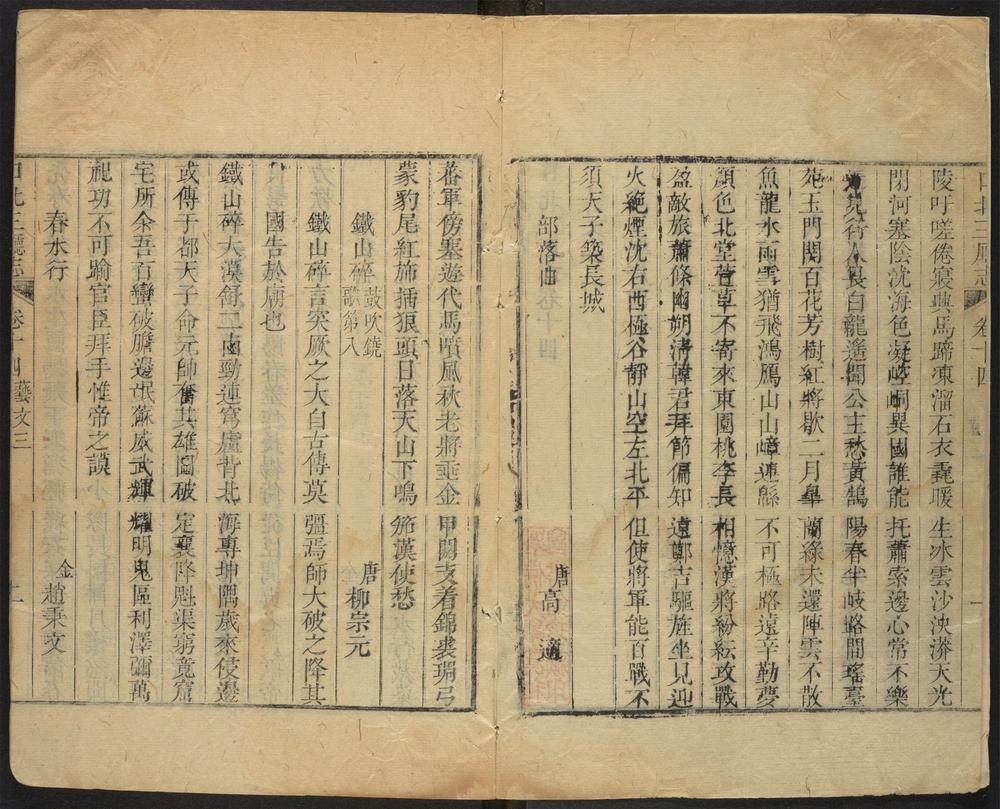 口北三廳志 卷十四
陵吁嗟倦寢興馬蹄凍溜石衣毳暖生冰雲沙泱漭天光
閉河塞陰沈海色凝崆峒異國誰能托蕭索邊心常不樂
見行人畏白龍遙聞公主愁黃鵠陽春半岐路間瑤臺
苑玉門關百花芳樹紅將歇二月臯蘭綠未還陣雲不散
魚龍水雨雪猶飛鴻鴈山山嶂連緜不可極路遠辛勤夢
顏色北堂萱草不寄來東園桃李長相憶漢將紛紜攻戰
盈敵旅蕭條幽朔清韓君拜節偏知遠鄭吉驅旌坐見迎
火絕煙沈右西極谷靜山空左北平但使將軍能百戰不
須天子築長城
部落曲 唐高適
蕃軍傍塞遊代馬噴風秋老將垂金甲閼支着錦裘琱弓
蒙豹尾紅旆插狼頭日落天山下鳴笳漢使愁
鐵山碎 鼓吹鐃歌第入 唐柳宗元
鐵山碎言突厥之大自古傳莫彊焉師大破之降其
國告於廟也
鐵山碎大漠舒二虜勁連穹廬背北海專坤隅歲來侵邊
或傳于都天子命元帥奮其雄圖破定襄降魁渠窮竟窟
宅所余吾百蠻破膽邊氓蘇威武輝耀明鬼區利澤彌萬
祀功不可踰官臣拜手惟帝之謨
春水行 金趙秉文
口北三廳志 卷十四藝文三